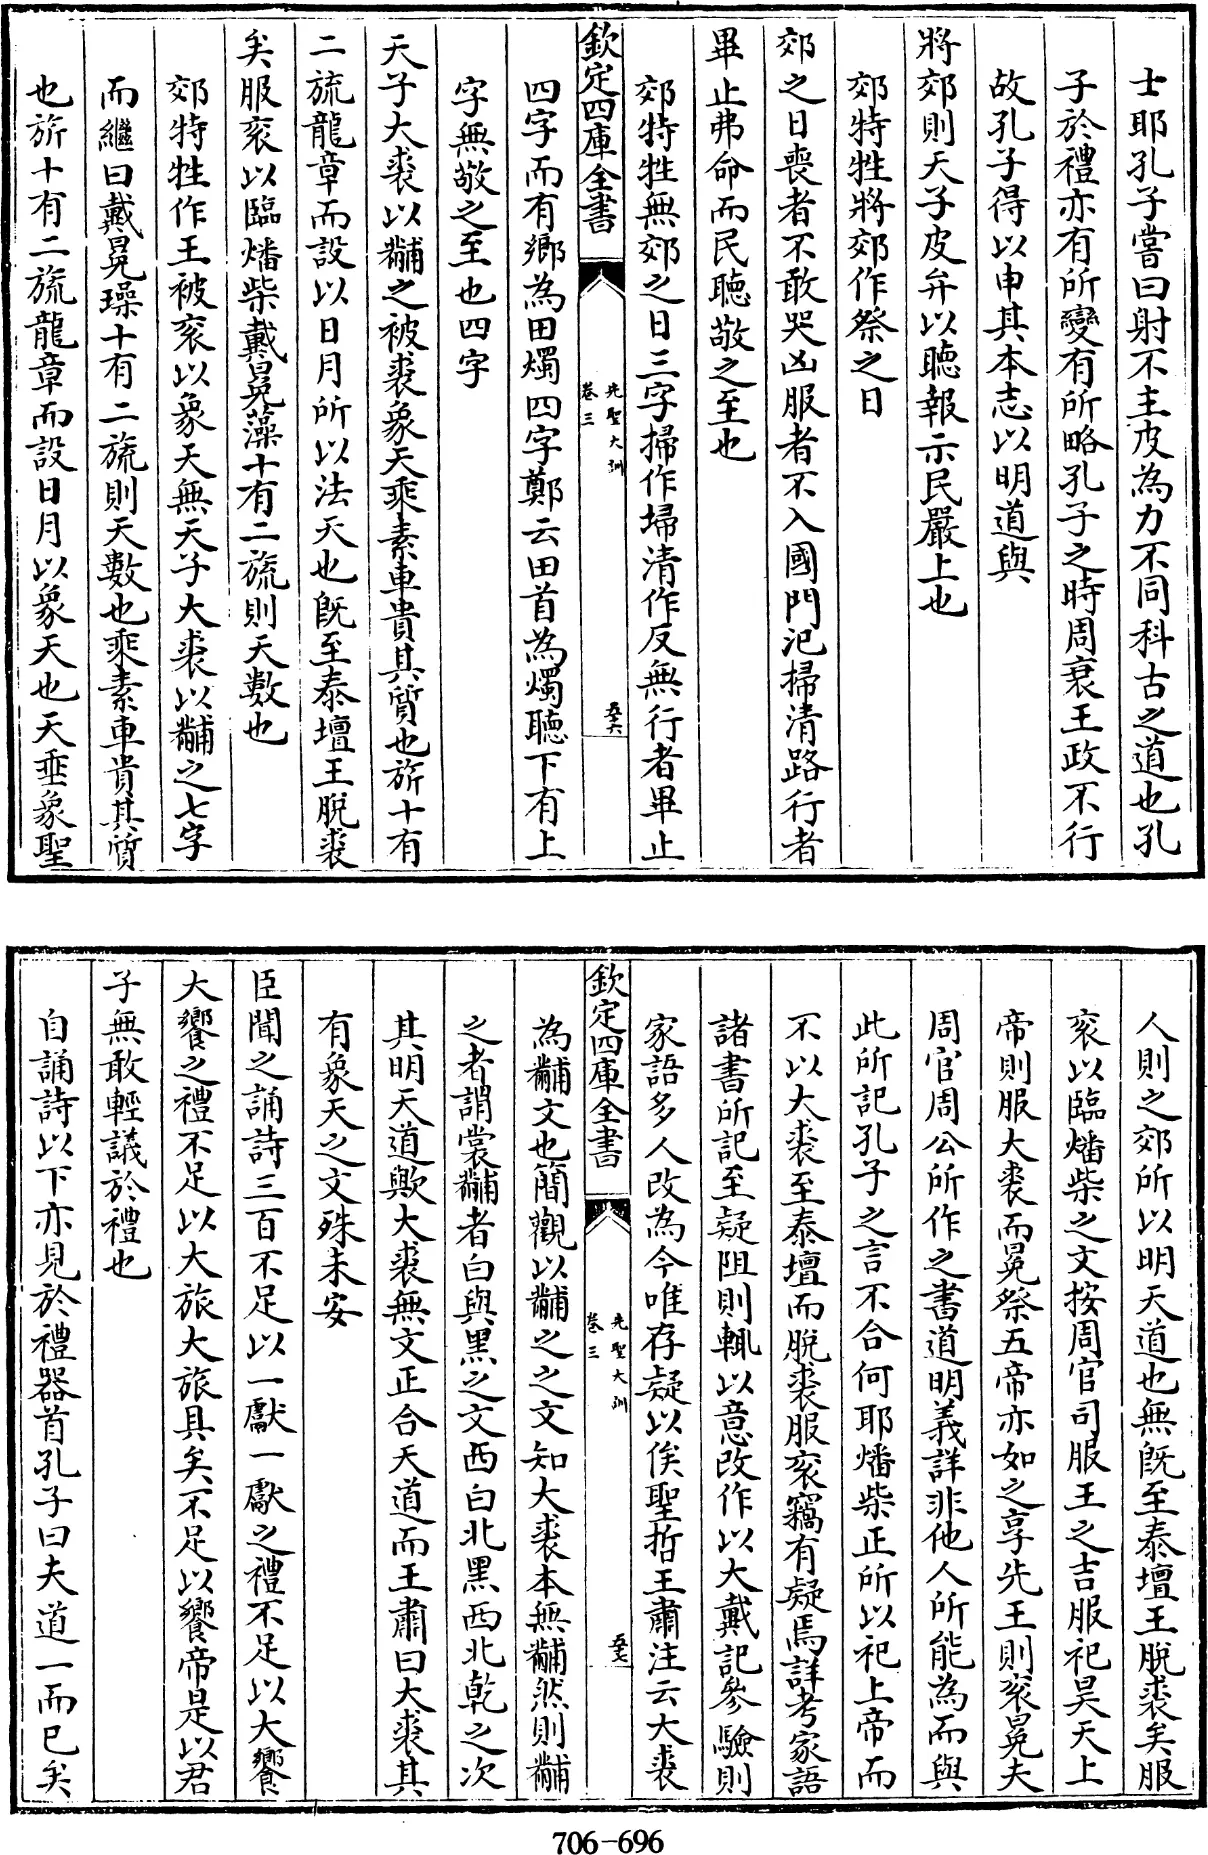 士耶孔子嘗曰射不主皮為力不同科古之道也孔
子於禮亦有所變有所略孔子之時周衰王政不行
故孔子得以申其本志以明道與
將郊則天子皮弁以聽報示民嚴上也
郊特牲將郊作祭之日
郊之日喪者不敢哭凶服者不入國門汜掃清路行者
畢止弗命而民聽敬之至也
郊特牲無郊之日三字掃作埽清作反無行者畢止
欽定四庫全書
先聖大訓
卷三
五十六
四字而有鄉為田燭四字鄭云田首為燭聽下有上
字無敬之至也四字
天子大裘以黼之被裘象天乘素車貴其質也旂十有
二旒龍章而設以日月所以法天也既至泰壇王脫裘
矣服袞以臨燔柴戴冕藻十有二旒則天數也
郊特牲作王被袞以象天無天子大裘以黼之七字
而繼曰戴冕璪十有二旒則天數也乘素車貴其質
也旂十有二旒龍章而設日月以象天也天垂象聖
人則之郊所以明天道也無既至泰壇王脫裘矣服
袞以臨燔柴之文按周官司服王之吉服祀昊天上
帝則服大裘而冕祭五帝亦如之享先王則袞冕夫
周官周公所作之書道明義詳非他人所能為而與
此所記孔子之言不合何耶燔柴正所以祀上帝而
不以大裘至泰壇而脫裘服袞竊有疑焉詳考家語
諸書所記至疑阻則輒以意改作以大戴記參驗則
家語多人改為今唯存疑以俟聖哲王肅注云大裘
欽定四庫全書
先聖大訓
卷三
五十七
為黼文也簡觀以黼之之文知大裘本無黼然則黼
之者謂裳黼者白與黑之文西白北黑西北乾之次
其明天道歟大裘無文正合天道而王肅曰大裘其
有象天之文殊未安
臣聞之誦詩三百不足以一獻一獻之禮不足以大饗
大饗之禮不足以大旅大旅具矣不足以饗帝是以君
子無敢輕議於禮也
自誦詩以下亦見於禮器首孔子曰夫道一而已矣
706-696